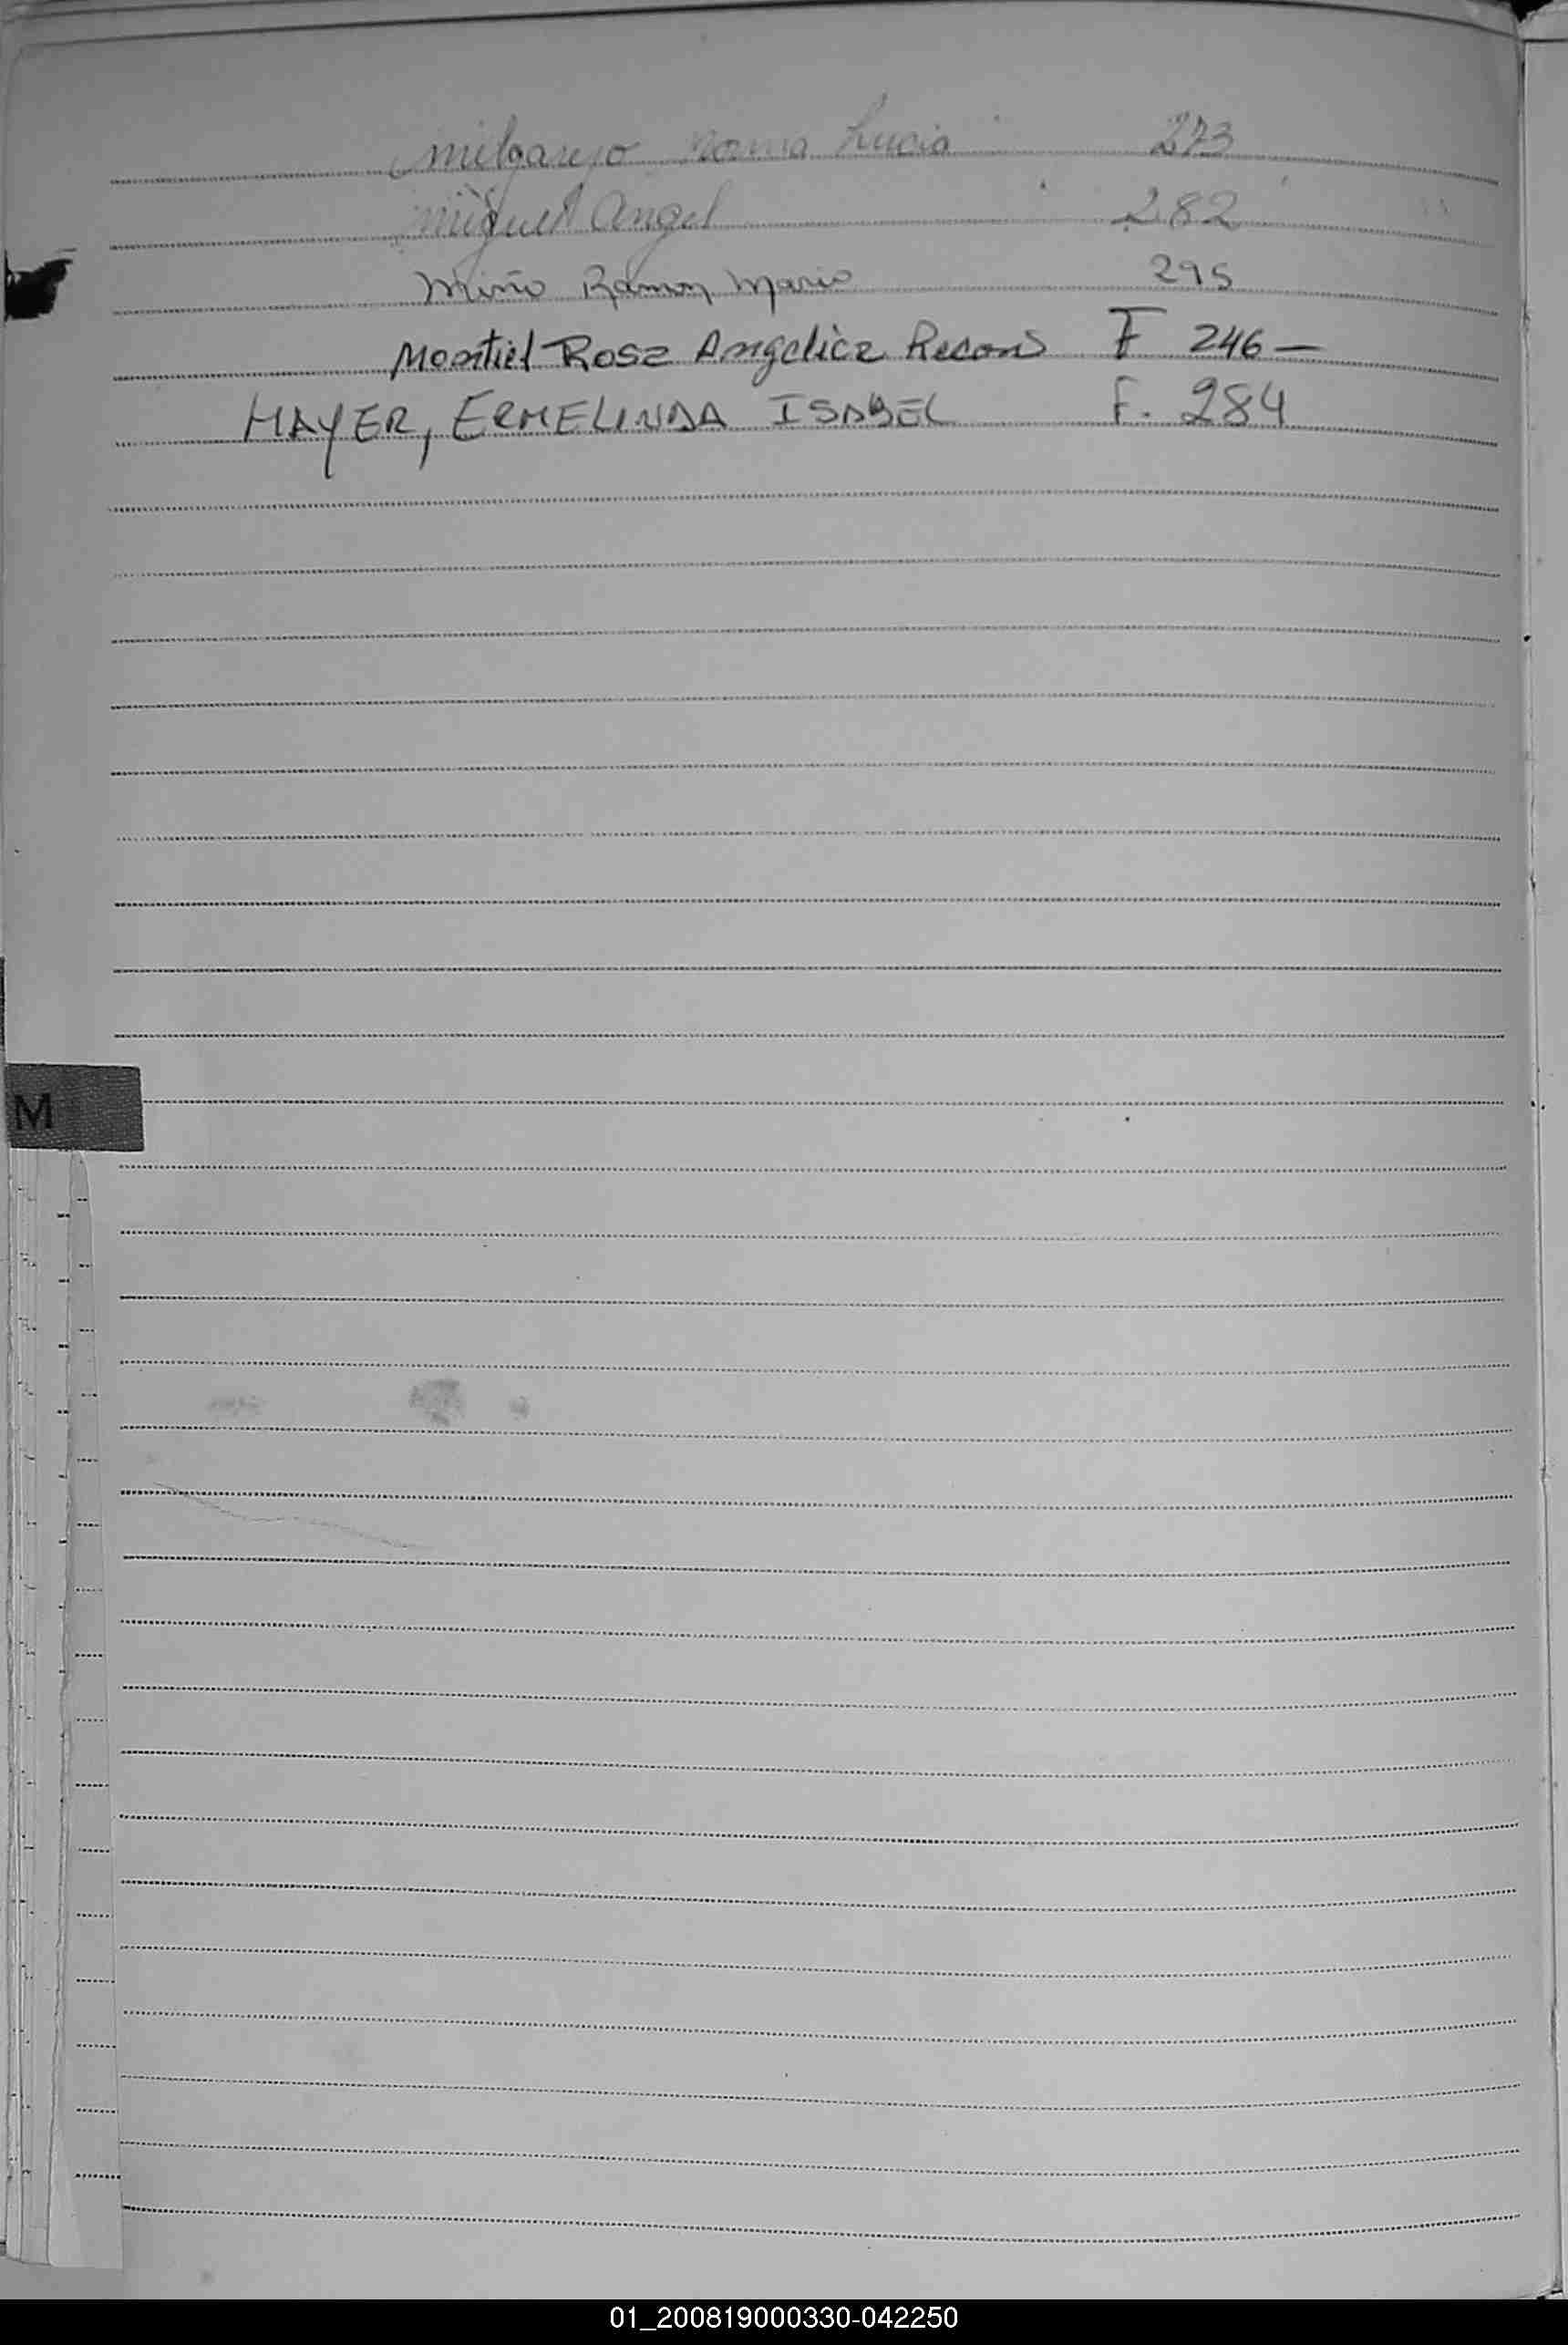 Melgarejo Norma Lucia 273
Miguel Angel 282
Miño Ramon Mario 295
Montiel Rosa Angelica Recon F 246 —
MAYER, ERMELINDA ISABEL F. 284
M
01_200819000330-042250